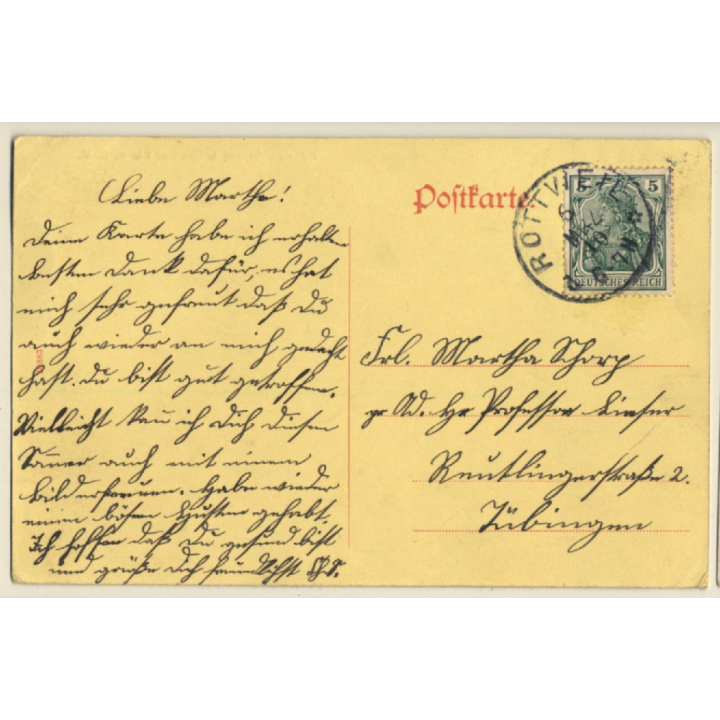 Liebe Martha!
Deine Karte habe ich erhalten
besten Dank dafür, es hat
mich sehr gefreut daß Du
auch wieder an mich gedacht
hast. Du bist gut getroffen.
Vielleicht kann ich Dich diesen
Sommer auch mit einem
Bild erfreuen. Habe wieder
einen bösen Husten gehabt.
Ich hoffe daß Du gesund bist
und grüße Dich freundlichst
Postkarte.
ROTTWEIL
5 5
DEUTSCHES REICH
Frl. Martha Schorp
pr Ad. Hr Professor
Reutlingerstraße 2.
Tübingen